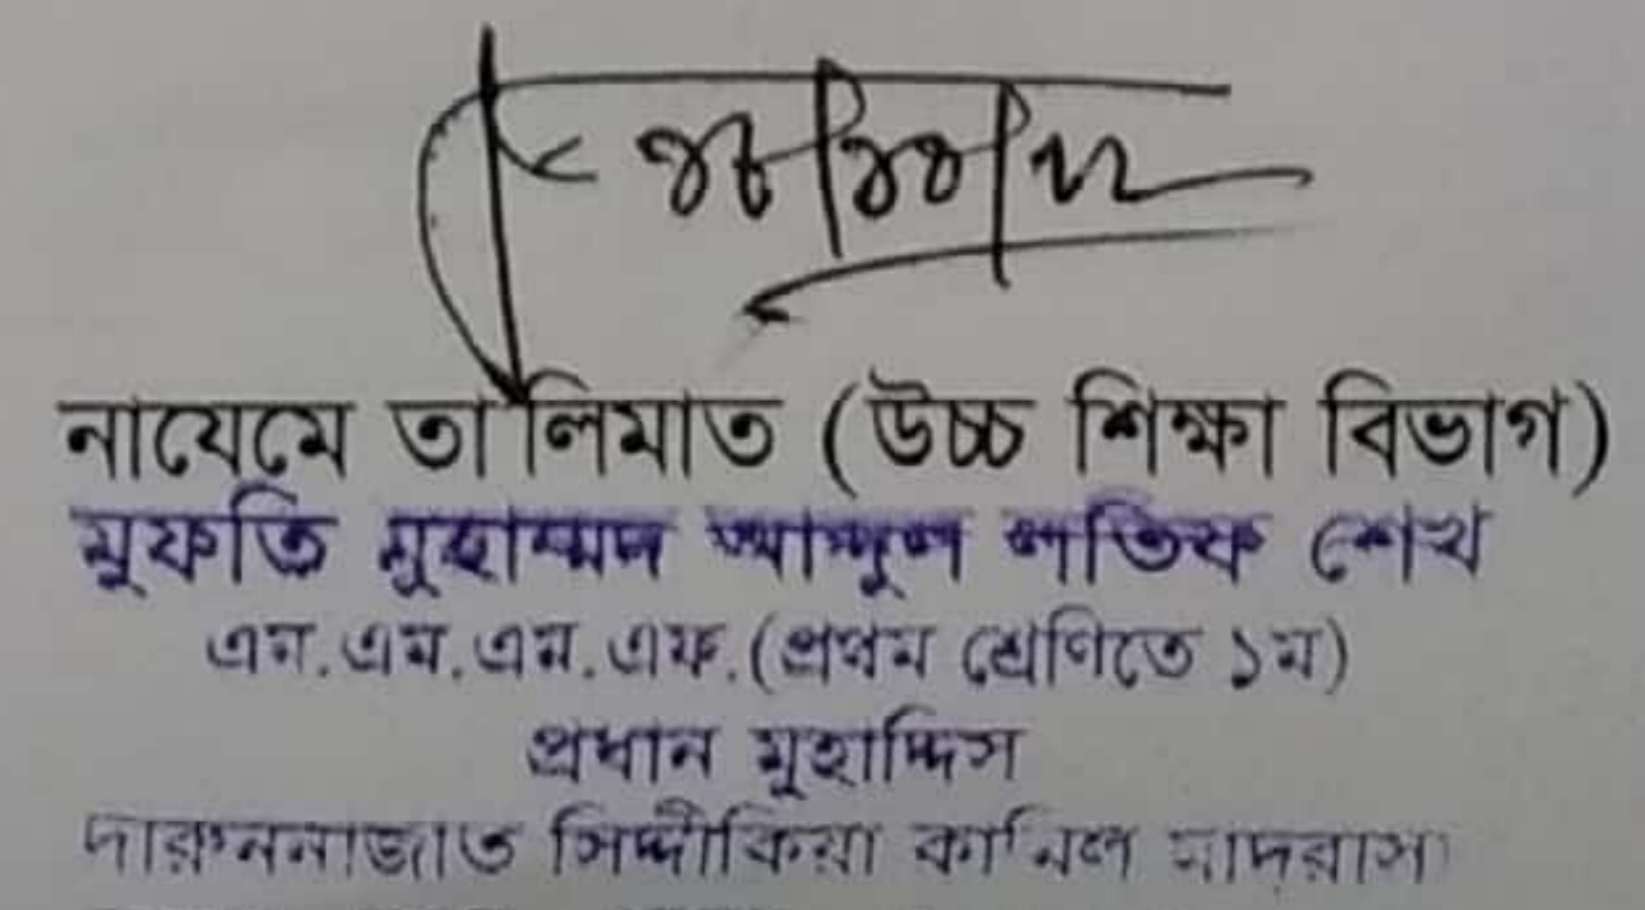 নায়েমে তা'লিমাত (উচ্চ শিক্ষা বিভাগ)
মুফতি মুহাম্মদ আব্দুল লতিফ শেখ
এম.এম.এম.এফ.(প্রথম শ্রেণিতে ১ম)
প্রধান মুহাদ্দিস
দারুননাজাত সিদ্দীকিয়া কামিল মাদরাসা